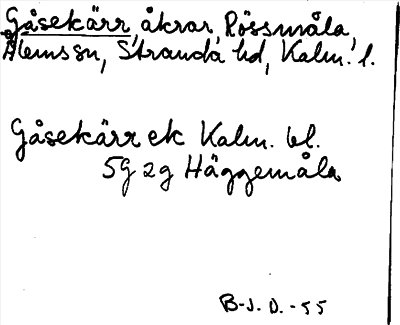 Gåsekärr, åkrar, Rössmåla,
Ålems sn, Stranda hd, Kalm. l.
Gåsekärr ek Kalm. bl.
5G 2g Häggemåla
B-J. D. -55